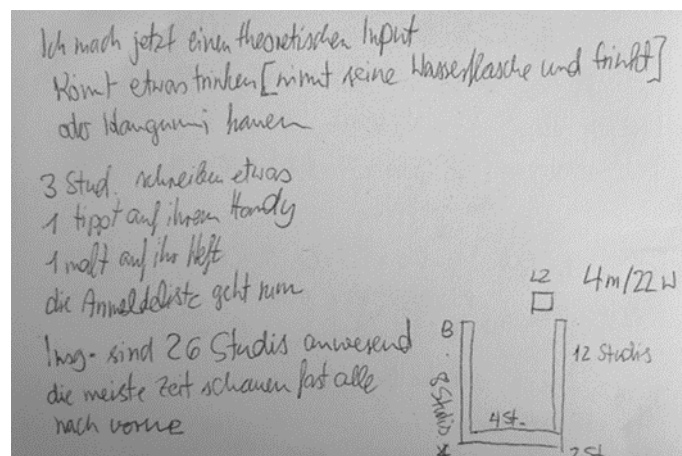 Ich mach jetzt einen theoretischen Input
Könnt etwas trinken [nimmt seine Wasserflasche und trinkt]
oder kauen
3 Stud. schreiben etwas
1 tippt auf ihrem Handy
1 malt auf ihr Heft
die Anmeldeliste geht rum
Insg. sind 26 Studis anwesend
die meiste Zeit schauen fast alle
nach vorne
4m/22w
B
12 Studis
8 Studis
4 St.
2 St.